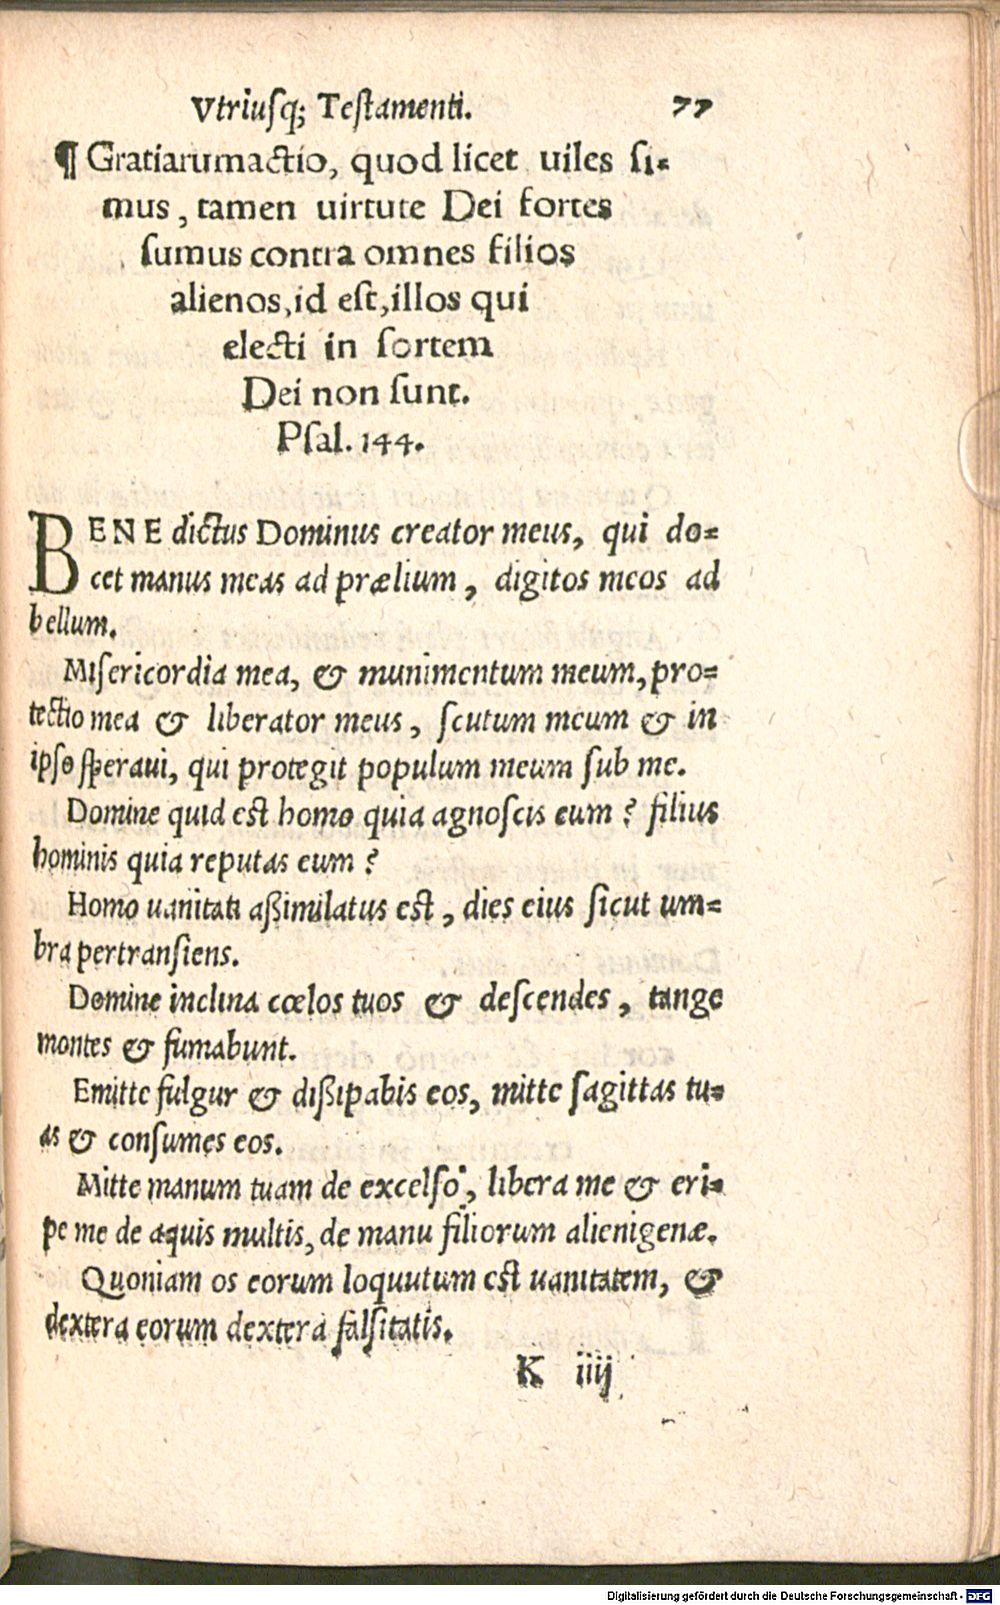 Vtriusq; Testamenti. 77
¶ Gratiarumactio, quod licet uiles si-
mus, tamen uirtute Dei fortes
sumus contra omnes filios
alienos, id est, illos qui
electi in sortem
Dei non sunt.
Psal. 144.
BENE dictus Dominus creator meus, qui do-
cet manus meas ad prælium, digitos meos ad
bellum.
Misericordia mea, & munimentum meum, pro-
tectio mea & liberator meus, scutum meum & in
ipso speraui, qui protegit populum meum sub me.
Domine quid est homo quia agnoscis eum? filius
hominis quia reputas eum?
Homo uanitati aßimilatus est, dies eius sicut um-
bra pertransiens.
Domine inclina cœlos tuos & descendes, tange
montes & fumabunt.
Emitte fulgur & dißipabis eos, mitte sagittas tu-
as & consumes eos.
Mitte manum tuam de excelso, libera me & eri-
pe me de aquis multis, de manu filiorum alienigenæ.
Quoniam os eorum loquutum est uanitatem, &
dextera eorum dextera falsitatis.
K iiij
Digitalisierung gefördert durch die Deutsche Forschungsgemeinschaft - DFG